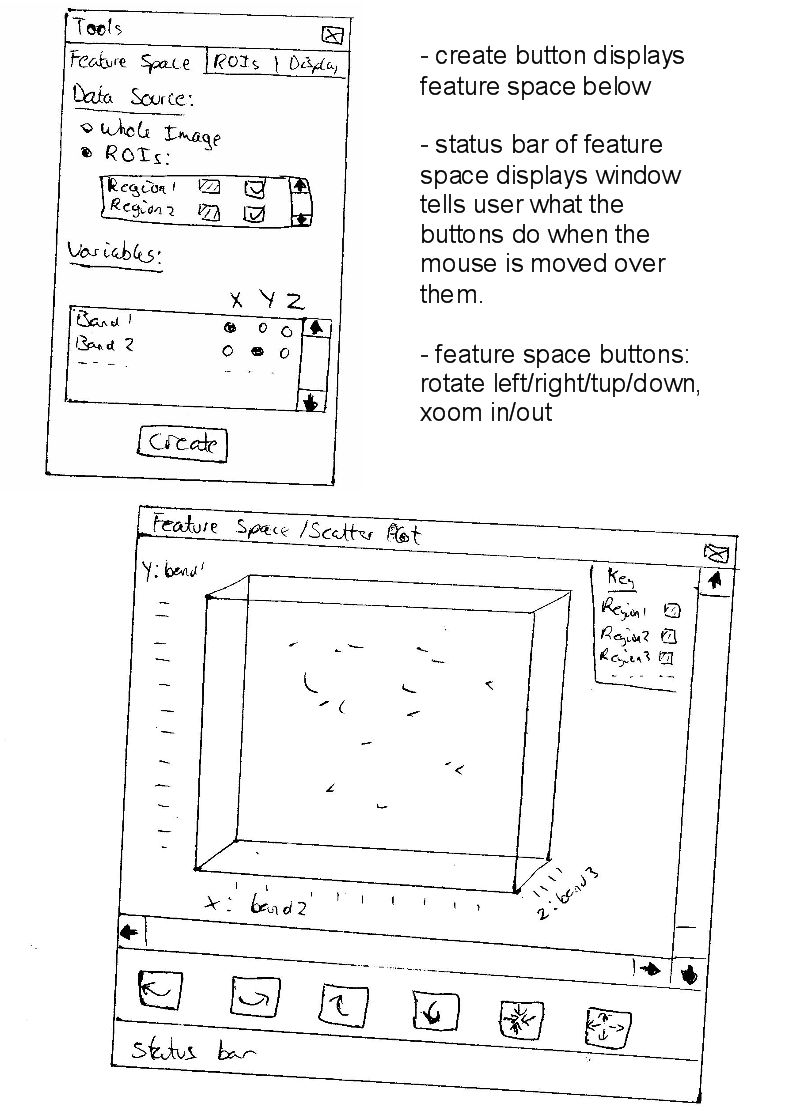 Tools
Feature Space | ROIs | Display
Data Source:
Whole Image
ROIs:
Region 1
Region 2
Variables:
X Y Z
Band 1
Band 2
Create
- create button displays
feature space below
- status bar of feature
space displays window
tells user what the
buttons do when the
mouse is moved over
them.
- feature space buttons:
rotate left/right/tup/down,
xoom in/out
Feature Space / Scatter Plot
Y: band 1
Key
Region 1
Region 2
Region 3
X: band 2
Z: band 3
Status bar